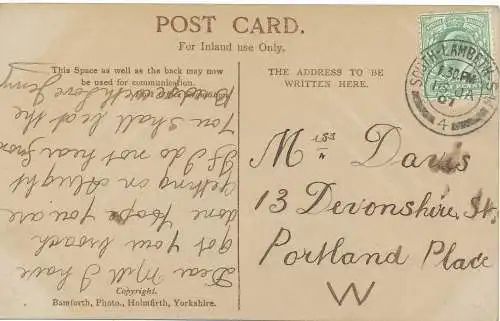 POST CARD.
For Inland use Only.
This Space as well as the back may now
be used for communication.
THE ADDRESS TO BE
WRITTEN HERE.
SOUTH-LAMBETH
1.30PM
07
4
Mrs Davis
13 Devonshire St
Portland Place
W
Dear Mill I have
got your broach
done hope you are
getting on Alright
If I do not hear from
You shall be at the
with love Jenny
Copyright.
Bamforth, Photo., Holmfirth, Yorkshire.